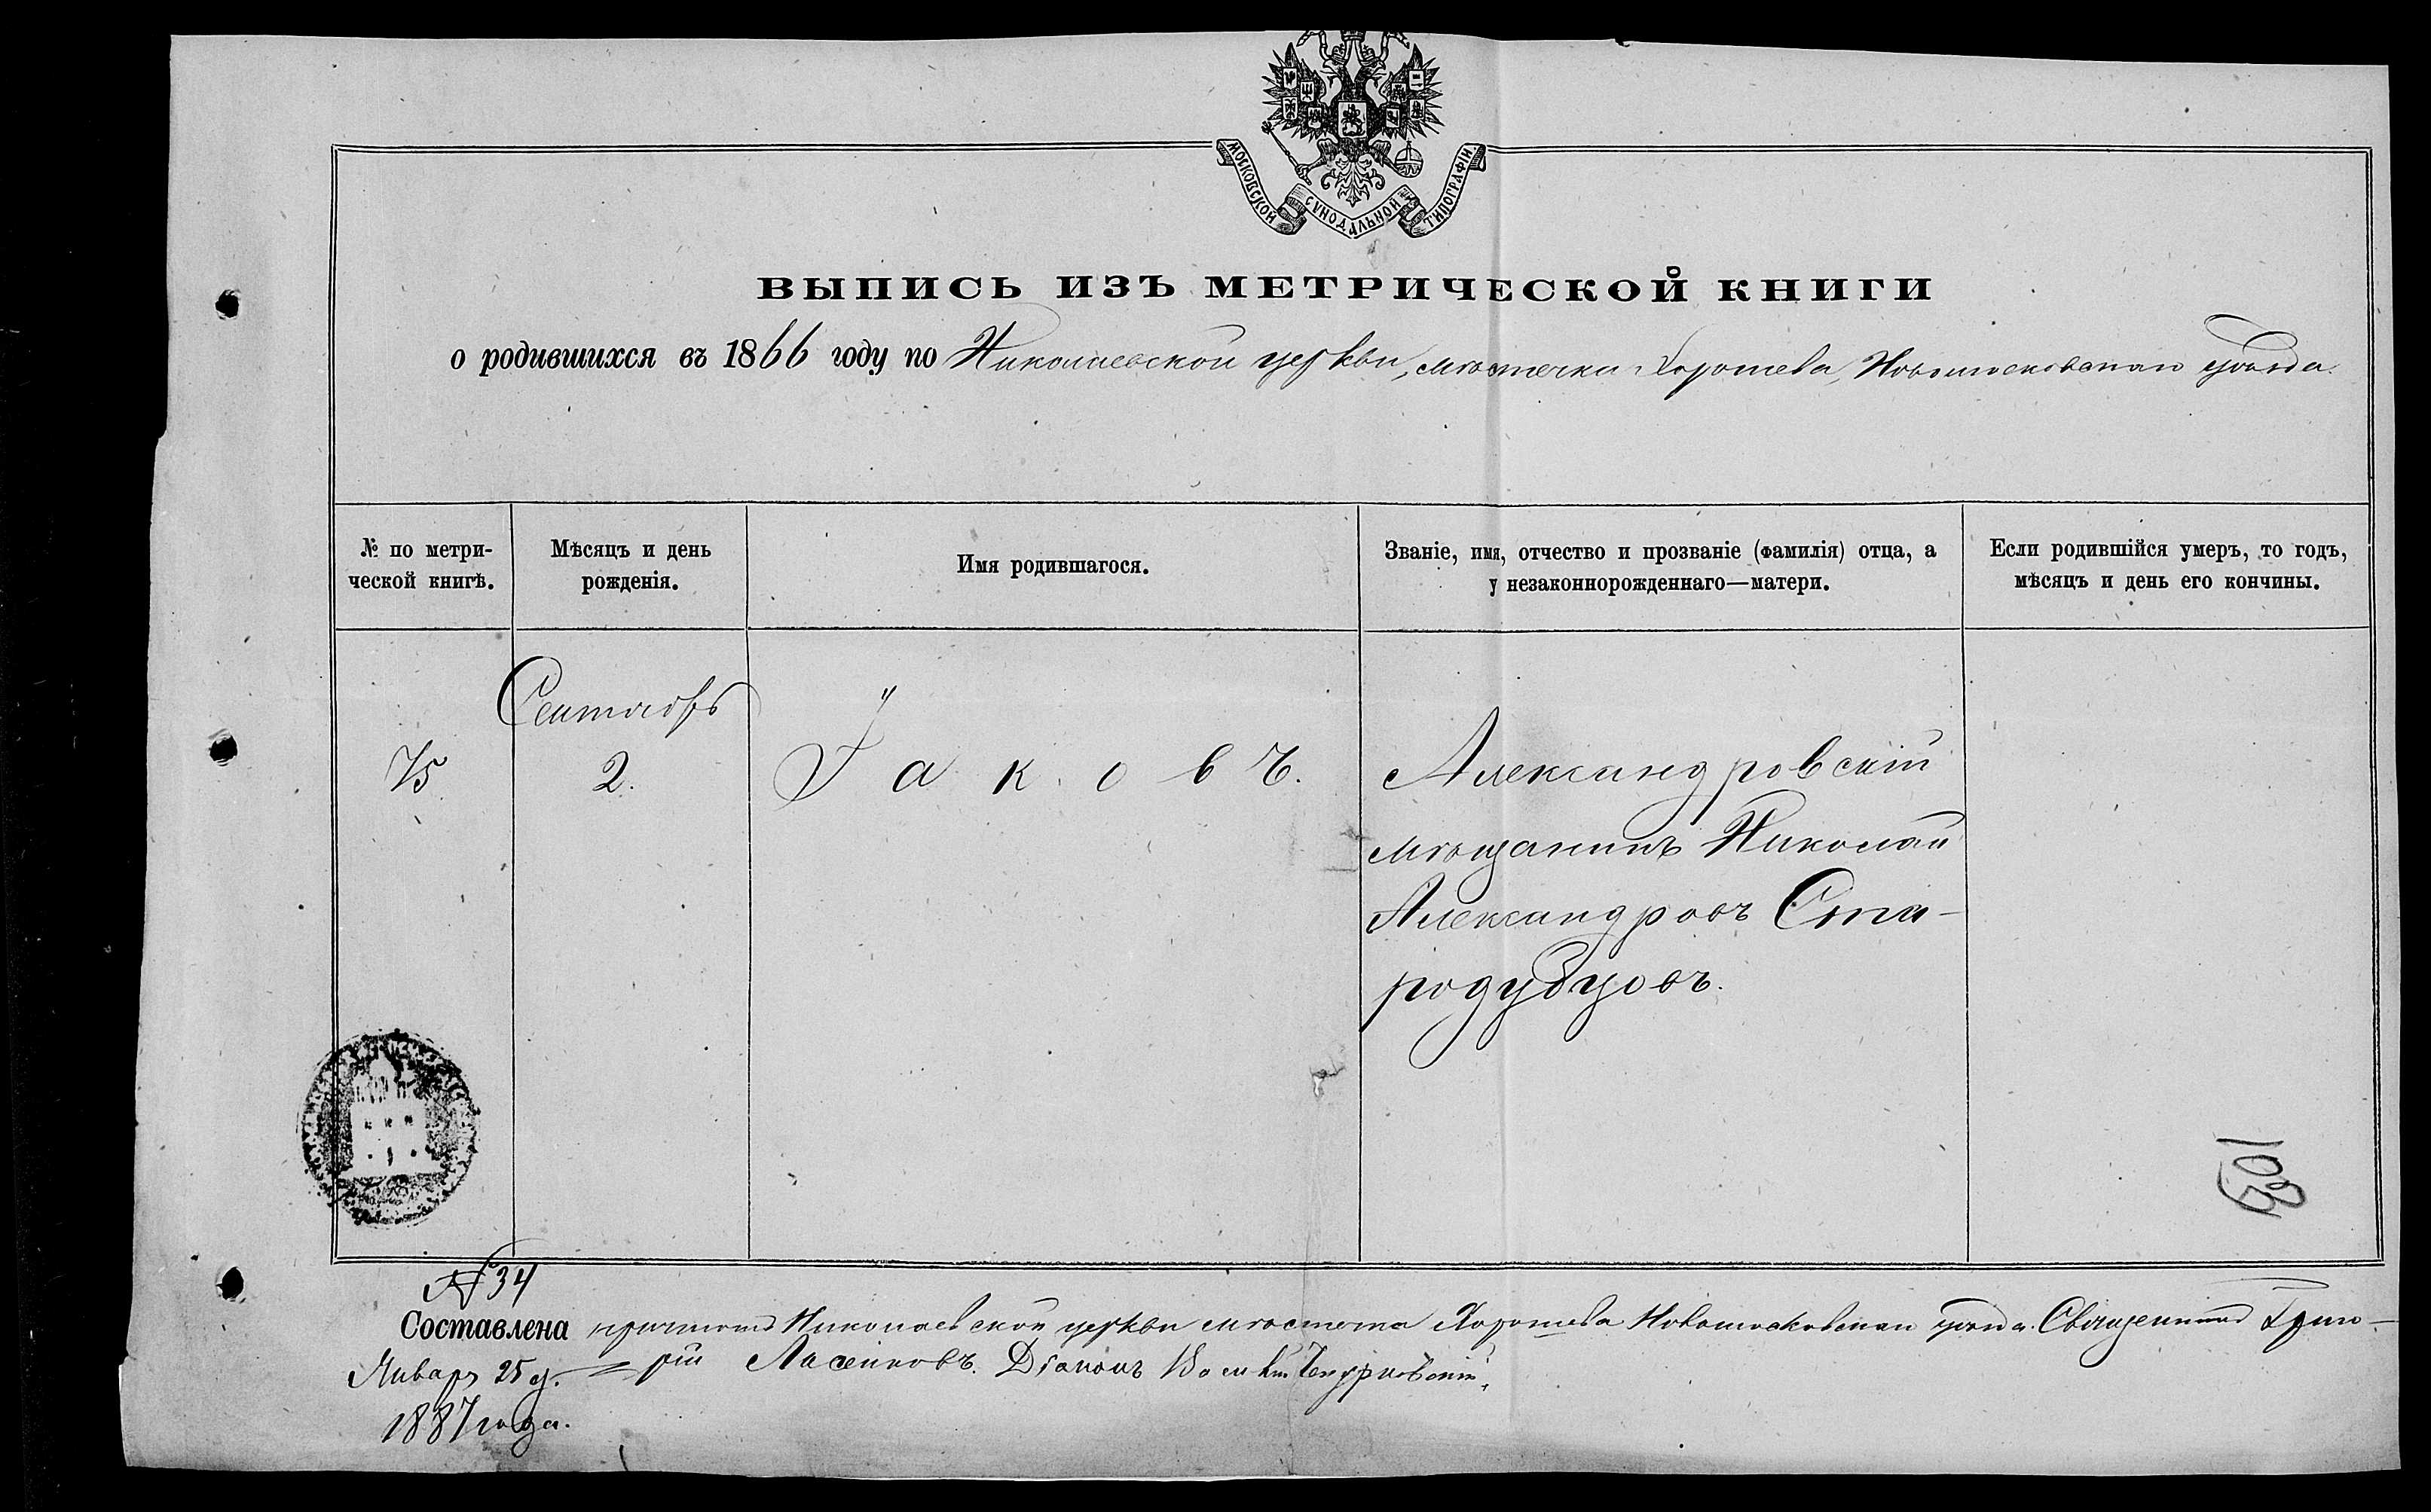 МОСКОВСКОЙ СѴНОДАЛЬНОЙ ТИПОГРАФІИ.
ВЫПИСЬ ИЗЪ МЕТРИЧЕСКОЙ КНИГИ
о родившихся въ 1866 году по Николаевской церкви, мѣстечка Хорошева, Новомосковскаго уѣзда.
№ по метри-
ческой книгѣ.
Мѣсяцъ и день
рожденія.
Имя родившагося.
Званіе, имя, отчество и прозваніе (фамилія) отца, а
у незаконнорожденнаго—матери.
Если родившійся умеръ, то годъ,
мѣсяцъ и день его кончины.
75
Сентябрь
2.
Іаковъ.
Александровскій
мѣщанинъ Николай
Александровъ Ста-
родубцовъ.
109
№ 34
Составлена причтомъ Николаевской церкви мѣстечка Хорошева Новомосковскаго уѣзда. Священникъ Григо-
Январь 25 д. рій Діаконъ
1887 года.